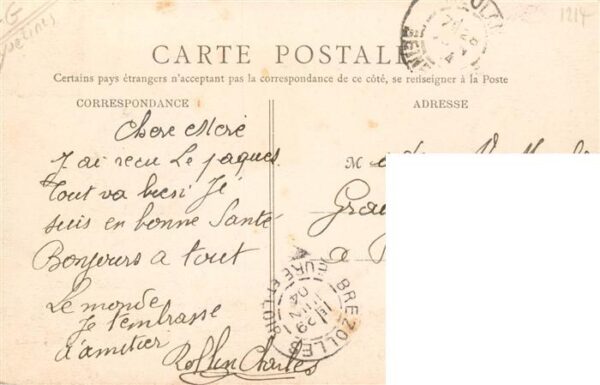 1214
CARTE POSTALE
Certains pays étrangers n'acceptant pas la correspondance de ce côté, se renseigner à la Poste
CORRESPONDANCE
ADRESSE
Chere Meré
J'ai recu Le paques
Tout va bien Je
suis en bonne Santé
Bonjours a tout
Le monde
Je t'embrasse
d'amitier
Rollin Charles
M
a
BREZOLLES
EURE ET LOIR
29
04